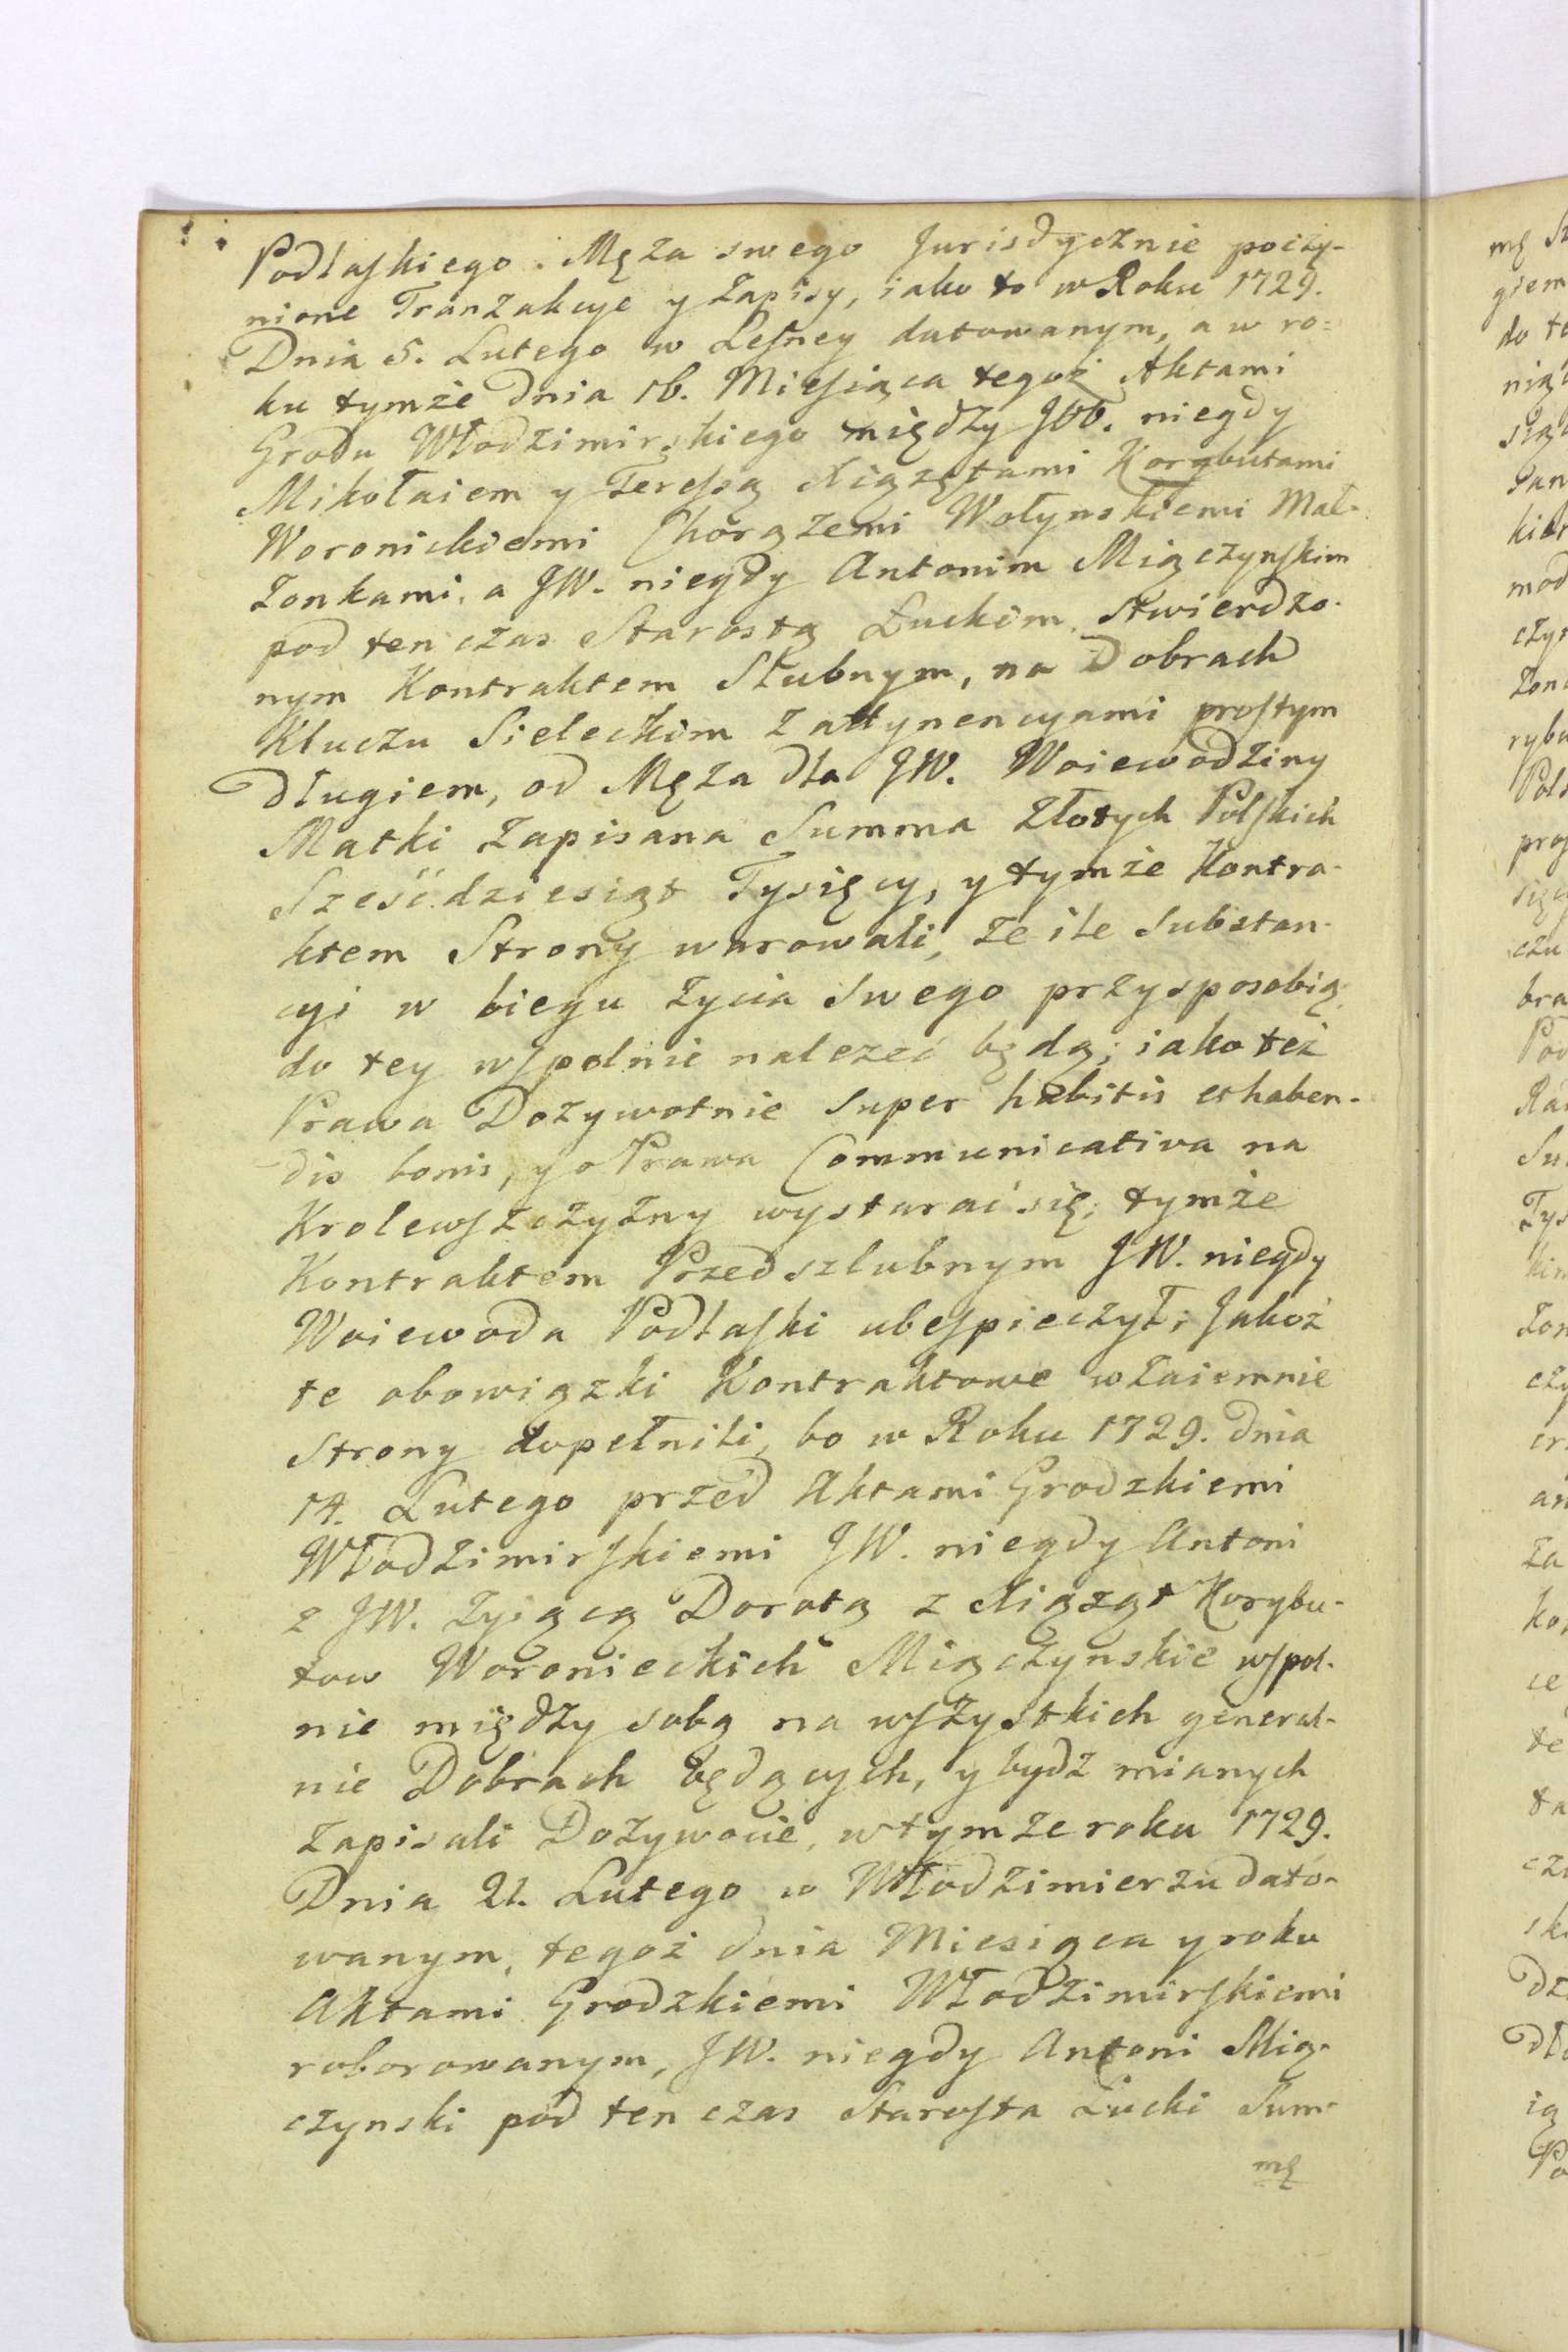 Podlaſkiego Męża swego Jurisdycznie poczy-
nione Tranzakcye y Zapisy, iako to w Roku 1729.
Dnia 5. Lutego w Leſney datowanym, a w ro=
ku tymże Dnia 16. Mieſiąca tegoż Aktami
Grodu Włodzimirskiego między JWW. niegdy
Mikołaiem y Tereſsą Xiązętami Korybutami
Woronickiemi Chorązemi Wołynskiemi Mał-
żonkami, a JW. niegdy Antonim Miączynſkim
pod ten czas Starostą Łuckim Stwierdzo-
nym Kontraktem Slubnym, na Dobrach
Kluczu Sieleckim z attynencyami proſtym
Długiem, od Męża dla JW. Woiewodziny
Matki zapisana Summa Złotych Polſkich
Sześćdziesiąt Tysięcy, y tymże Kontra-
ktem Strony warowali, że ile Substan-
cyi w biegu życia Swego przysposobią,
do tey wſpolnie nalezeć będą; iako też
Prawa Dożywotnie Super habitis et haben-
dis bonis, y o Prawa Communicativa na
Krolewſzczyzny wystarać się; tymże
Kontraktem Przedszlubnym JW. niegdy
Woiewoda Podlaſki ubeſpieczył; Jakoż
te obowiązki Kontraktowe wzaiemnie
Strony dopełnili, bo w Roku 1729. Dnia
14. Lutego przed Aktami Grodzkiemi
Włodzimirſkiemi JW. niegdy Antoni
z JW. żyiącą Dorotą z Xiąząt Korybu-
tow Woronieckich Miączynskie wſpol-
nie między sobą na wſzystkich general-
nie Dobrach będących, y bydź mianych
zapisali Dożywocie, w tymże roku 1729.
Dnia 21. Lutego w Włodzimierzu dato-
wanym, tegoż dnia Miesiąca y roku
Aktami Grodzkiemi Włodzimirſkiemi
roborowanym, JW. niegdy Antoni Mią-
czynski pod ten czas Staroſta Łucki Sum-
mę